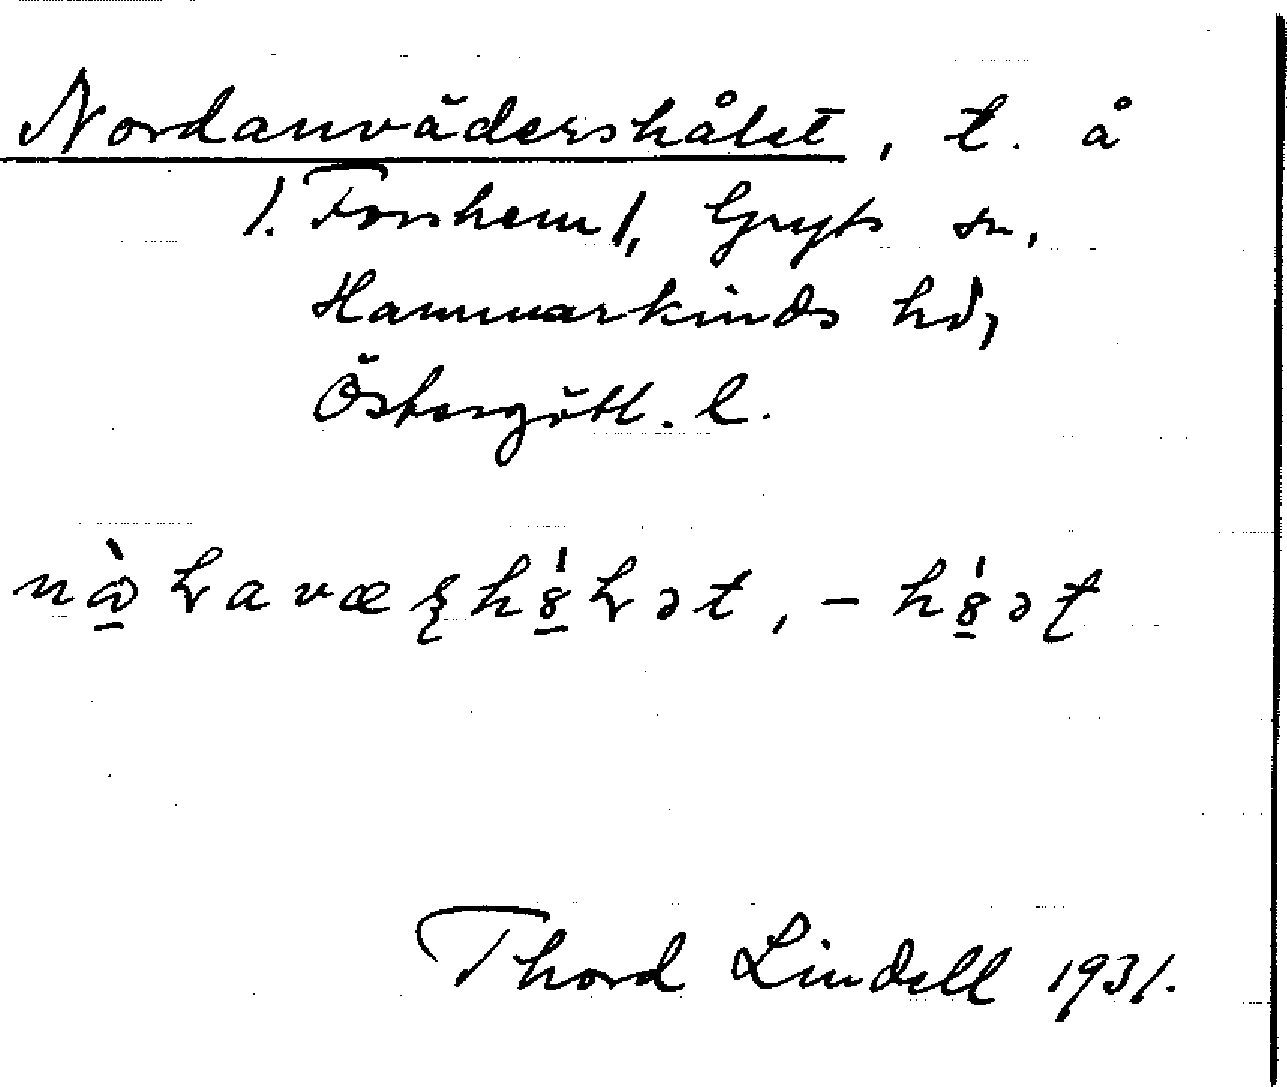 Nordanvädershålet, t. å
/. Forshem /, Gryts sn,
Hammarkinds hd,
Östergötl. l.
Thord Lindell 1931.